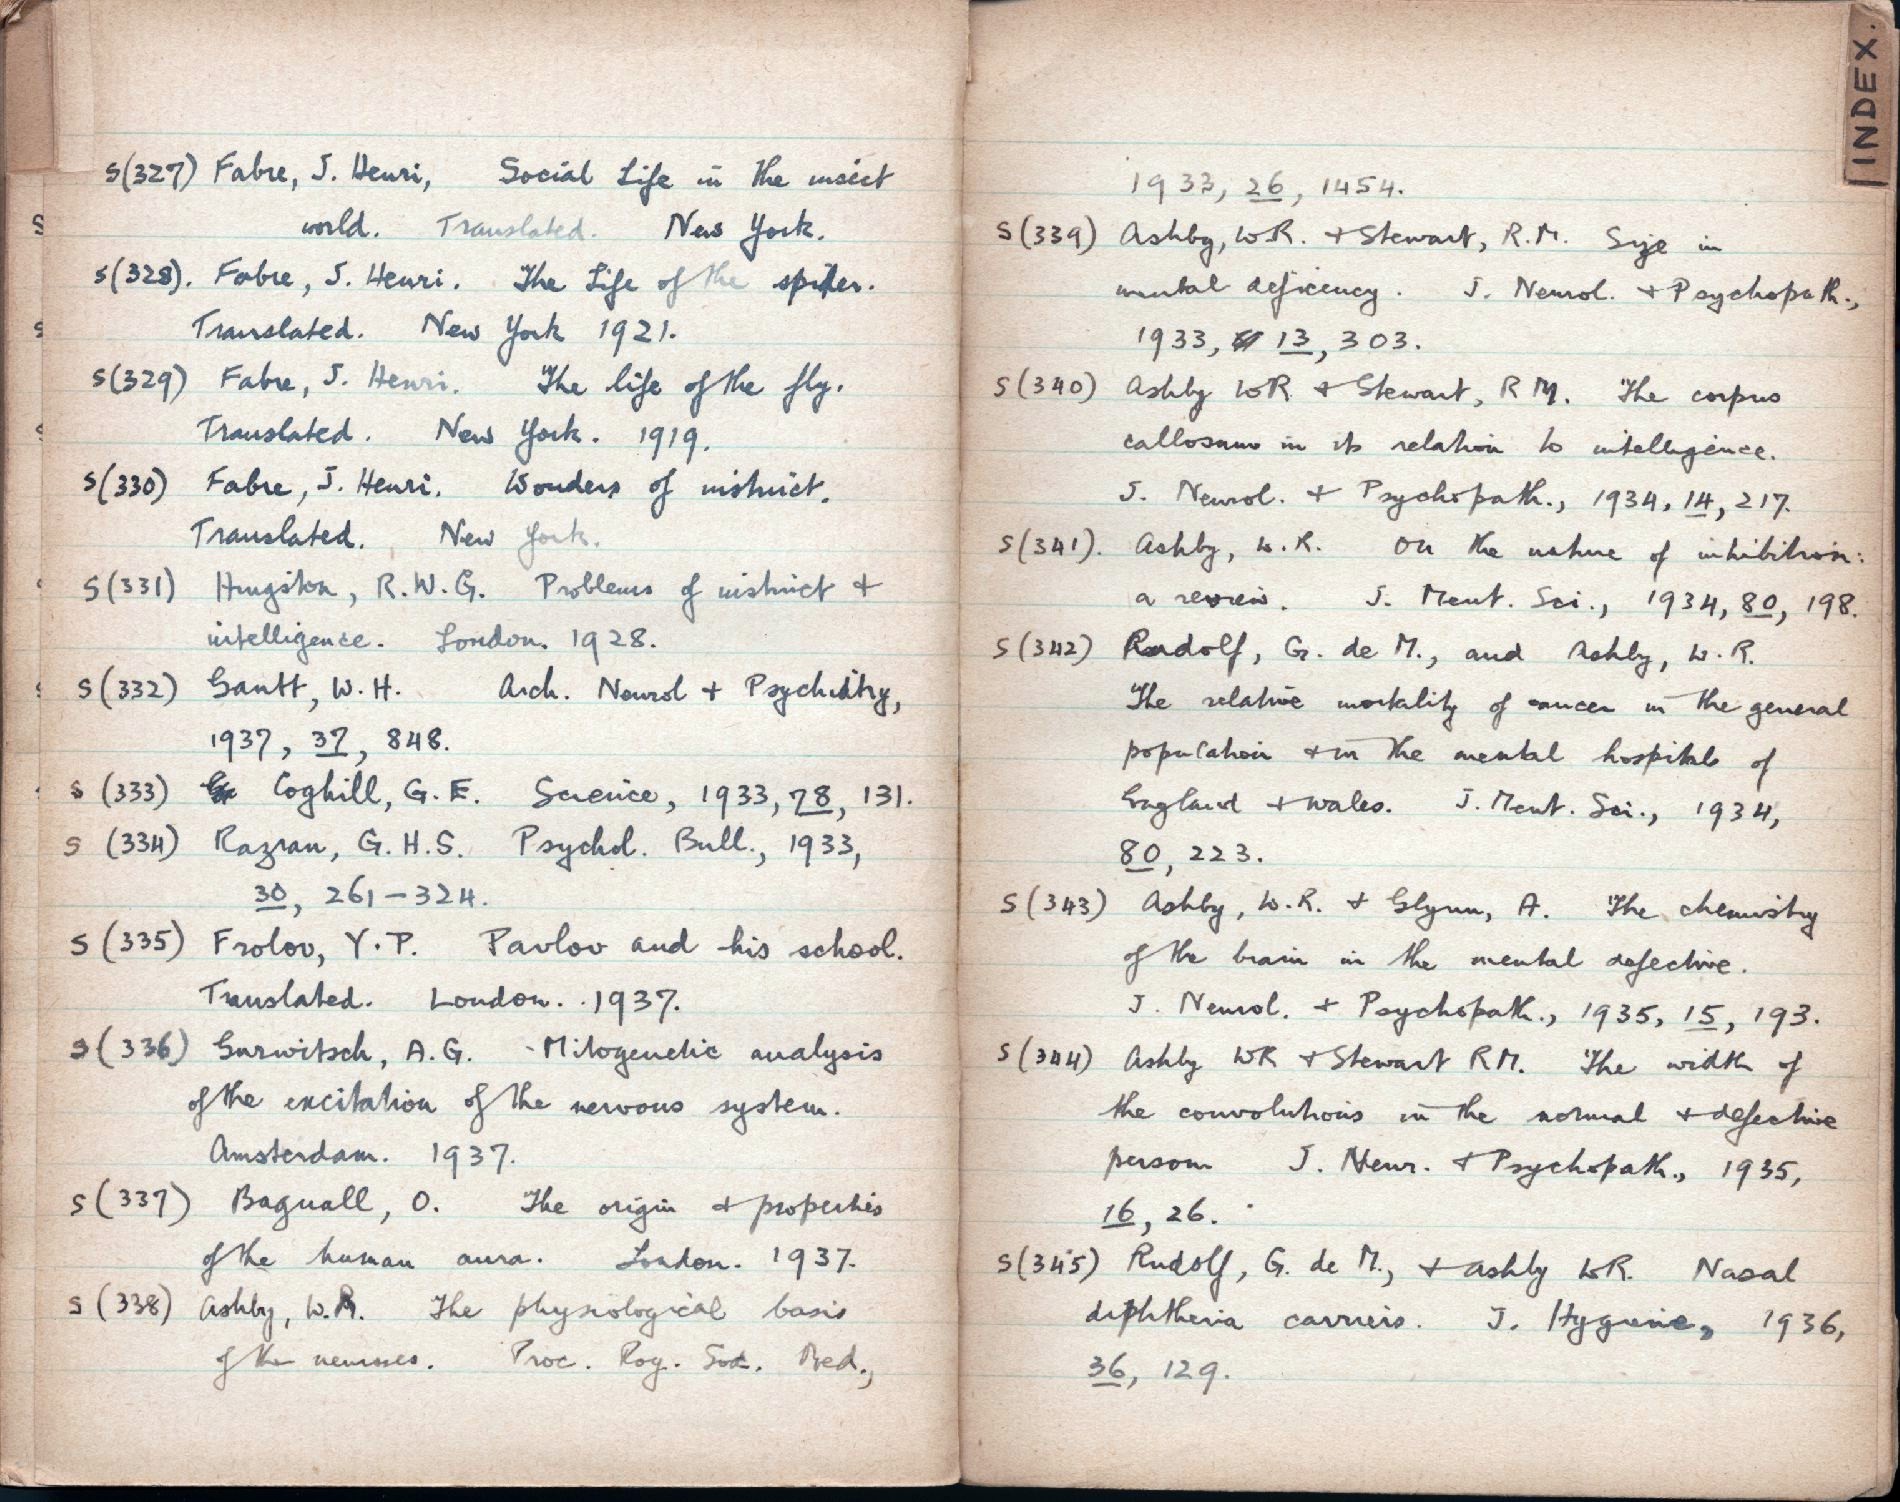 S(327) Fabre, J. Henri, Social Life in the insect
world. Translated. New York.
S(328). Fabre, J. Henri. The Life of the spider.
Translated. New York 1921.
S(329) Fabre, J. Henri. The life of the fly.
Translated. New York. 1919.
S(330) Fabre, J. Henri. Wonders of instinct.
Translated. New York.
S(331) Hingston, R.W.G. Problems of instinct +
intelligence. London. 1928.
S(332) Gantt, W.H. Arch. Neurol + Psychiatry,
1937, 37, 848.
S (333) Coghill, G.E. Science, 1933, 78, 131.
S (334) Razran, G.H.S. Psychol. Bull., 1933,
30, 261-324.
S (335) Frolov, Y.P. Pavlov and his school.
Translated. London. 1937.
S (336) Gurwitsch, A.G. Mitogenetic analysis
of the excitation of the nervous system.
Amsterdam. 1937.
S (337) Bagnall, O. The origin + properties
of the human aura. London. 1937.
S (338) Ashby, W.R. The physiological basis
of the neuroses. Proc. Roy. Soc. Med.,
INDEX.
1933, 26, 1454.
S (339) Ashby, W.R. + Stewart, R.M. Size in
mental deficency. J. Neurol. + Psychopath.,
1933, 13, 303.
S (340) Ashby WR + Stewart, RM. The corpus
callosum in its relation to intelligence.
J. Neurol. + Psychopath., 1934, 14, 217.
S(341). Ashby, W.R. On the nature of inhibition:
a review. J. Ment. Sci., 1934, 80, 198.
S (342) Rudolf, G. de M., and Ashby, W.R.
The relative mortality of cancer in the general
population + in the mental hospitals of
England + Wales. J. Ment. Sci., 1934,
80, 223.
S (343) Ashby, W.R. + Glynn, A. The chemistry
of the brain in the mental defective.
J. Neurol. + Psychopath., 1935, 15, 193.
S(344) Ashby WR + Stewart RM. The width of
the convolutions in the normal + defective
person J. Neur. + Psychopath., 1935,
16, 26.
S(345) Rudolf, G. de M., + Ashby WR. Nasal
diphtheria carriers. J. Hygiene, 1936,
36, 129.